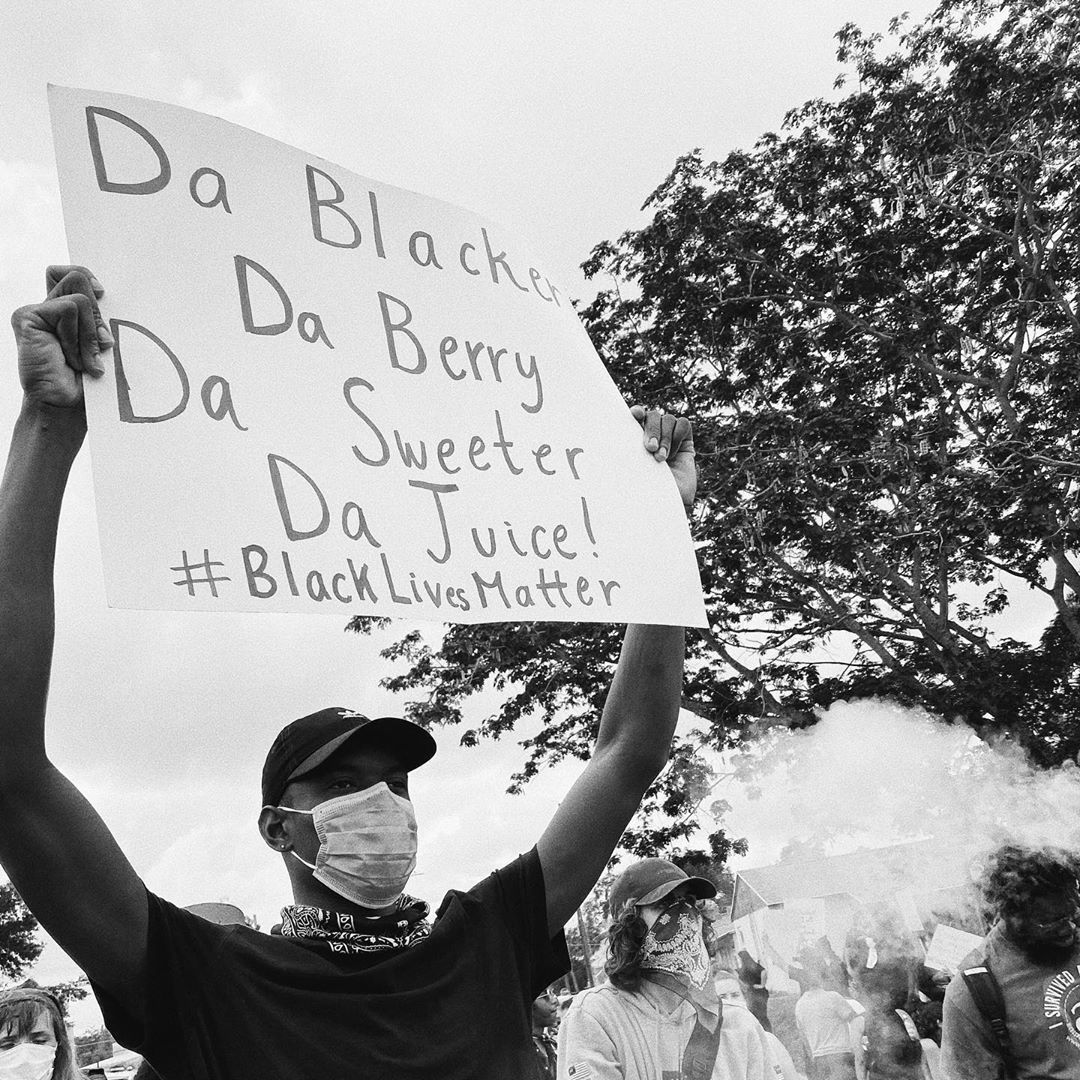 Da Blacker
Da Berry
Da Sweeter
Da Juice!
#BlackLivesMatter
I SURVIVED